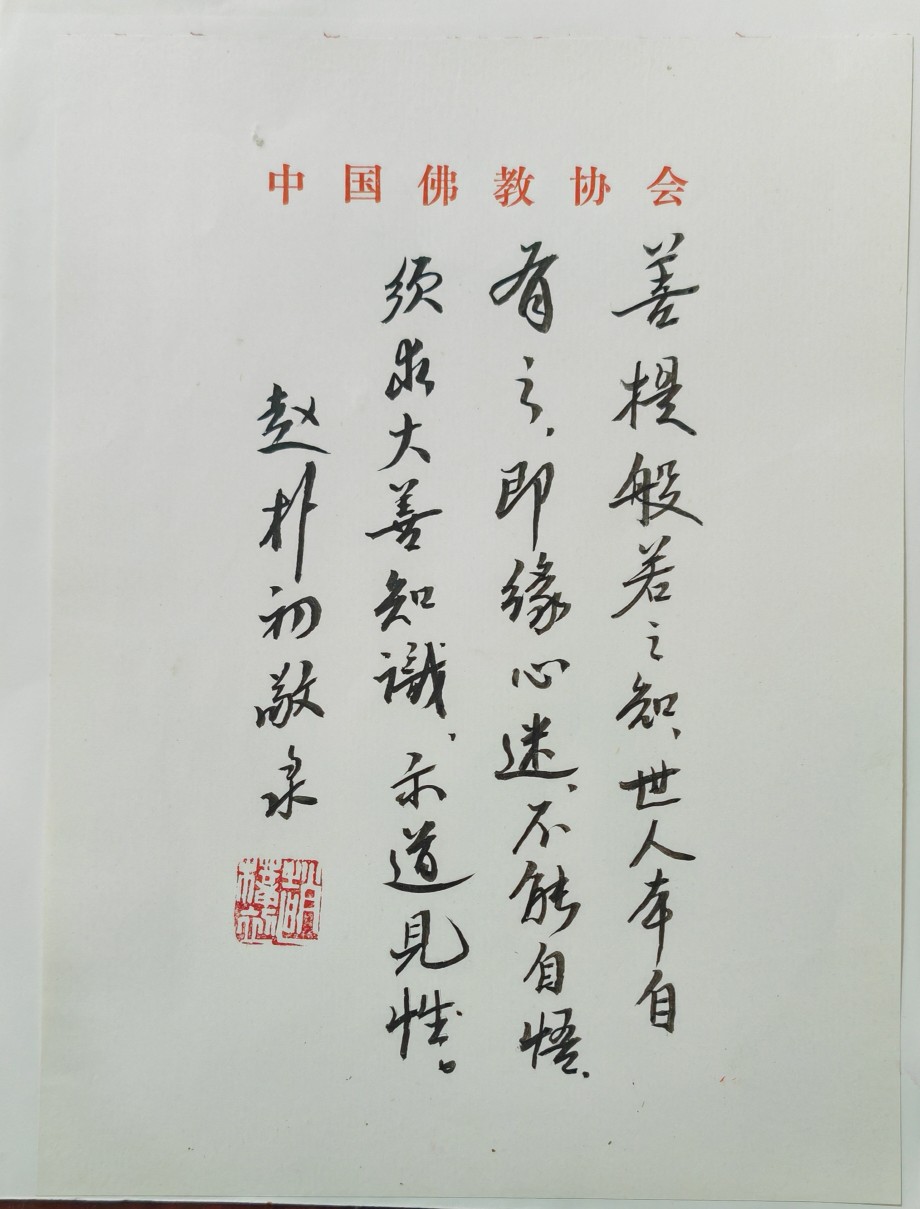 中国佛教协会
善提般若之知、世人本自
有之、即缘心迷、不能自悟、
须求大善知識、示道見性。
赵朴初敬录
趙樸初